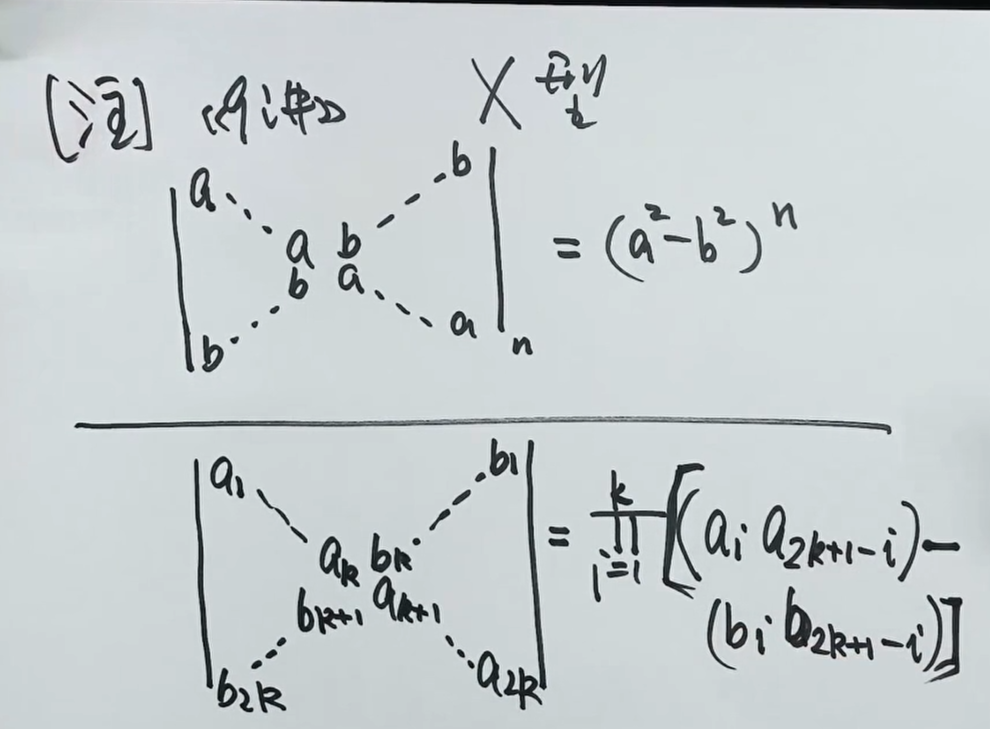 [注] 《9讲》 X型
a b
a b
b a
b a n
= (a²-b²)ⁿ
a₁ b₁
aₖ bₖ
bₖ₊₁ aₖ₊₁
b₂ₖ a₂ₖ
= ∏ᵢ₌₁ᵏ [(aᵢ a₂ₖ₊₁₋ᵢ)-
(bᵢ b₂ₖ₊₁₋ᵢ)]